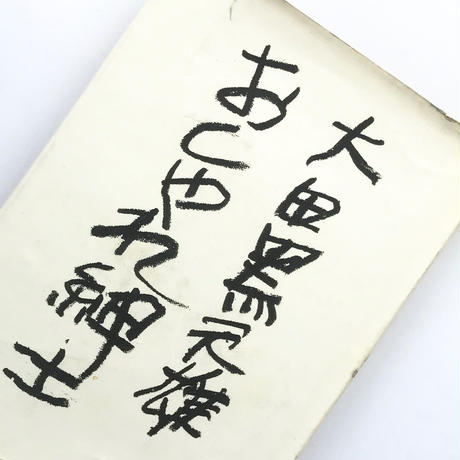 大田黒元雄
おしゃれ紳士